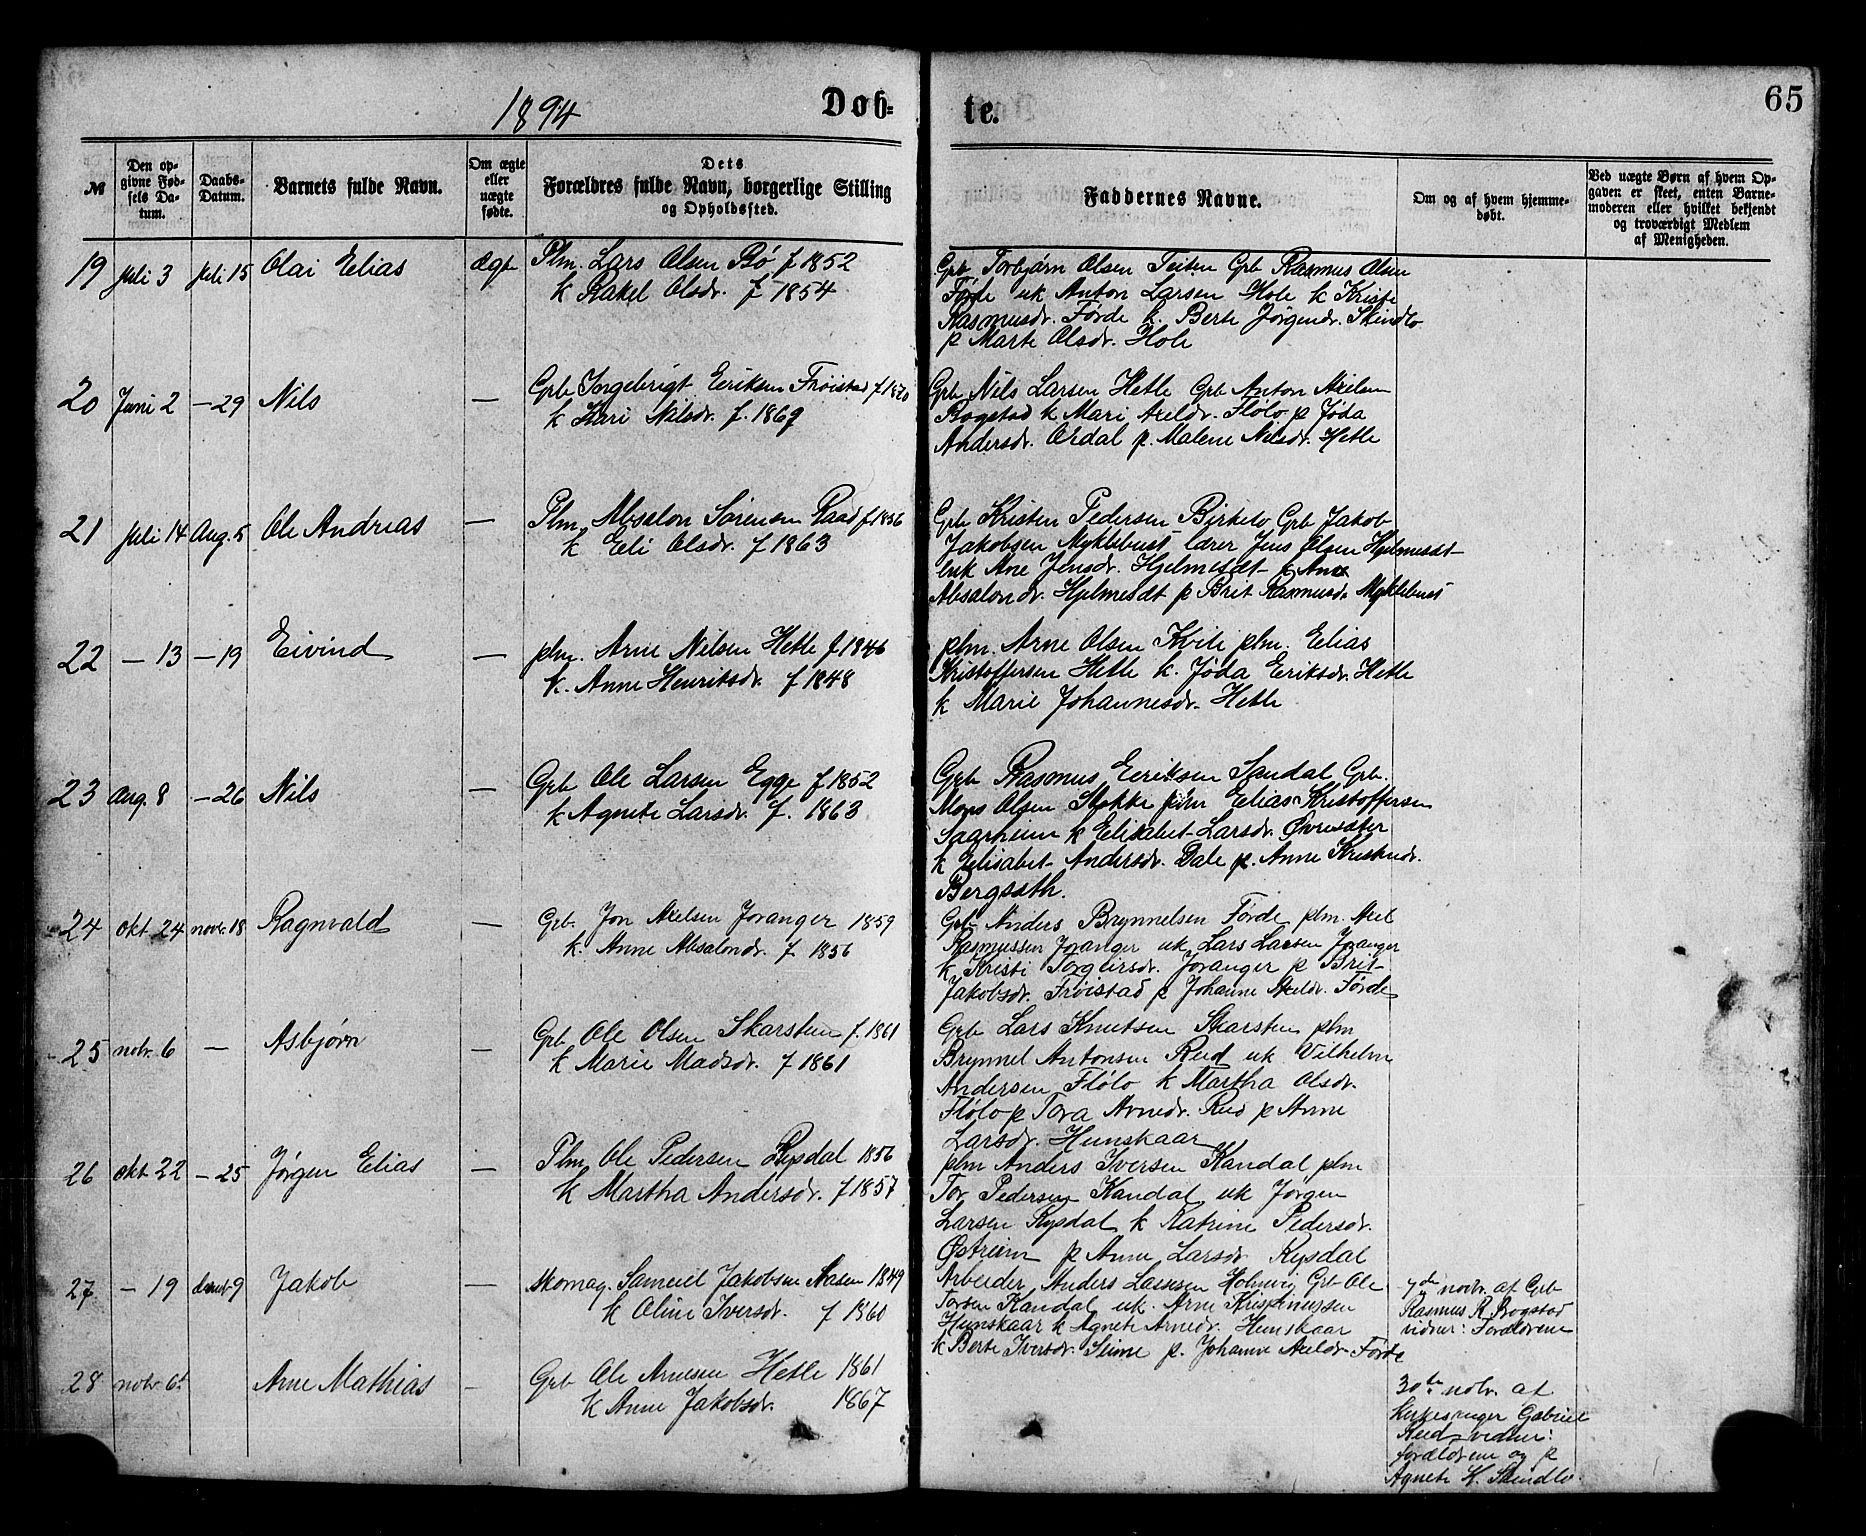 1894
Døb-
te.
65
№
Den op-
givne Fød-
sels Da-
tum.
Daabs-
Datum.
Barnets fulde Navn.
Om ægte
eller
uægte
fødte.
Dets
Forældres fulde Navn, borgerlige Stilling
og Opholdssted.
Faddernes Navne.
Om og af hvem hjemme-
døbt.
Ved uægte Børn af hvem Op-
gaven er skeet, enten Barne-
moderen eller hvilket bekjendt
og troværdigt Medlem
af Menigheden.
19 Juli 3 Juli 15 Olai Elias ægt Plm. Lars Olsen Bö f 1852
k Rakel Olsdr. f 1854
Grb Torbjörn Olsen Teiten Grb Rasmus Olsen
Förde uk Anton Larsen Hole k Kristi
Rasmusdr. Förde k. Berte Jörgendr. Skindlo
p Marte Olsdr. Hole
20 Juni 2 - 29 Nils — Grb Ingebrigt Eeriksen Fröistad f. 1820
k Kari Nilsdr. f. 1869
Grb Nils Larsen Hetle Grb Anton Axelsen
Bogstad k Mari Axeldr. Flölo p Jöda
Andersdr. Ordal p. Malene Nilsdr. Hetle
21 Juli 14 Aug. 5 Ole Andrias — Plm. Absalon Sörensen Raad f 1856
k Eli Olsdr. f 1863
Grb Kristen Pedersen Birkelo Grb Jakob
Jakobsen Myklebust lærer Jens Olsen Hjelmesæt
enk Ane Jensdr. Hjelmesæt k Ane
Absalondr. Hjelmesæt p Brit Rasmusdr Myklebust
22 - 13 - 19 Eivind — plm. Arne Nilsen Hetle f. 1846
k. Anne Henriksdr. f 1848
plm. Arne Olsen Kvile plm. Elias
Kristoffersen Hetle k. Jöda Eriksdr. Hetle
k Marie Johannesdr. Hetle
23 Aug. 8 - 26 Nils — Grb Ole Larsen Egge f 1852
k Agnete Larsdr. f. 1863
Grb Rasmus Eeriksen Sandal Grb.
Mons Olsen Stokke plm Elias Kristoffersen
Aarheim k Elisabet Larsdr. Övresæter
k Elisabet Andersdr. Dale p. Anne Kristendr.
Bergseth.
24 Okt 24 novr. 18 Ragnvald — Grb. Jon Axelsen Joranger 1859
k. Anne Absalondr. f 1856
Grb Anders Brynnelsen Förde plm. Axel
Rasmussen Joranger uk Lars Larsen Joranger
k Kristi Torgeirsdr. Joranger p Brit
Jakobsdr. Fröistad p Johanne Axeldr. Förde
25 novr. 6 — Asbjörn — Grb Ole Olsen Skarsten f. 1861
k Marie Madsdr. f 1861
Grb Lars Knutsen Skarsten plm
Brynnel Antonsen Reed uk Vilhelm
Andersen Flölo k Martha Olsdr.
Flölo p Tora Arnedr. Reed p Anne
Larsdr. Hunskaar
26 Okt 22 - 25 Jörgen Elias — Plm. Ole Pedersen Rysdal 1856
k Martha Andersdr. f 1857
plm Anders Iversen Kandal plm
Tor Pedersen Kandal uk Jörgen
Larsen Rysdal k Katrine Pedersdr.
Östreim p Anne Larsdr Rysdal
27 - 19 decmbr 9 Jakob — Skomag. Samuel Jakobsen Aasen 1849
k Oline Iversdr. f 1860
Arbeider Anders Lassesen Holmvig Grb Ole
Torsen Kandal uk. Arne Rasmussen
Hunskaar k Agnete Arnedr. Hunskaar
k Berte Iversdr. Seime p. Johanne Axeldr Förde
7de novbr. af Grb
Rasmus R. Bogstad
vidner: Forældrene
28 novbr. 6t Arne Mathias — Grb Ole Arnesen Hetle 1861
k Anne Jakobsdr. 1867
30te novbr. af
Kirkesanger Gabriel
Reed vidner:
forældrene og p
Agnete K. Skindlo.